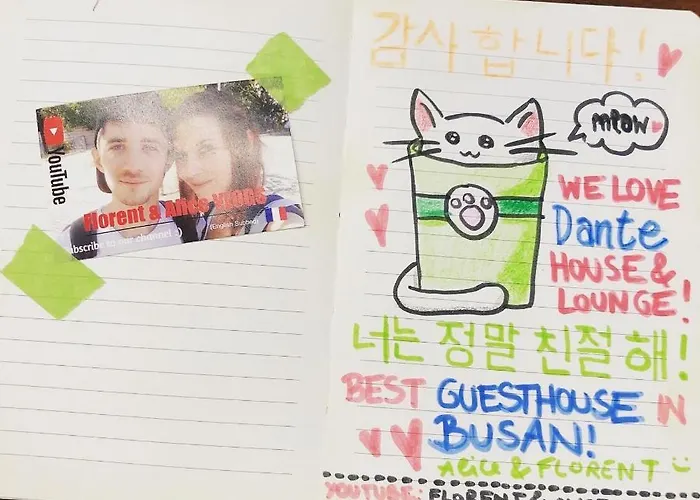 YouTube
Florent & Alice VLOGS
(English Subbed)
subscribe to our channel :)
감사합니다!
meow
WE LOVE
Dante
HOUSE &
LOUNGE!
너는 정말 친절해!
BEST GUESTHOUSE IN
BUSAN!
Alice & FLORENT
YOUTUBE: FLORENT &